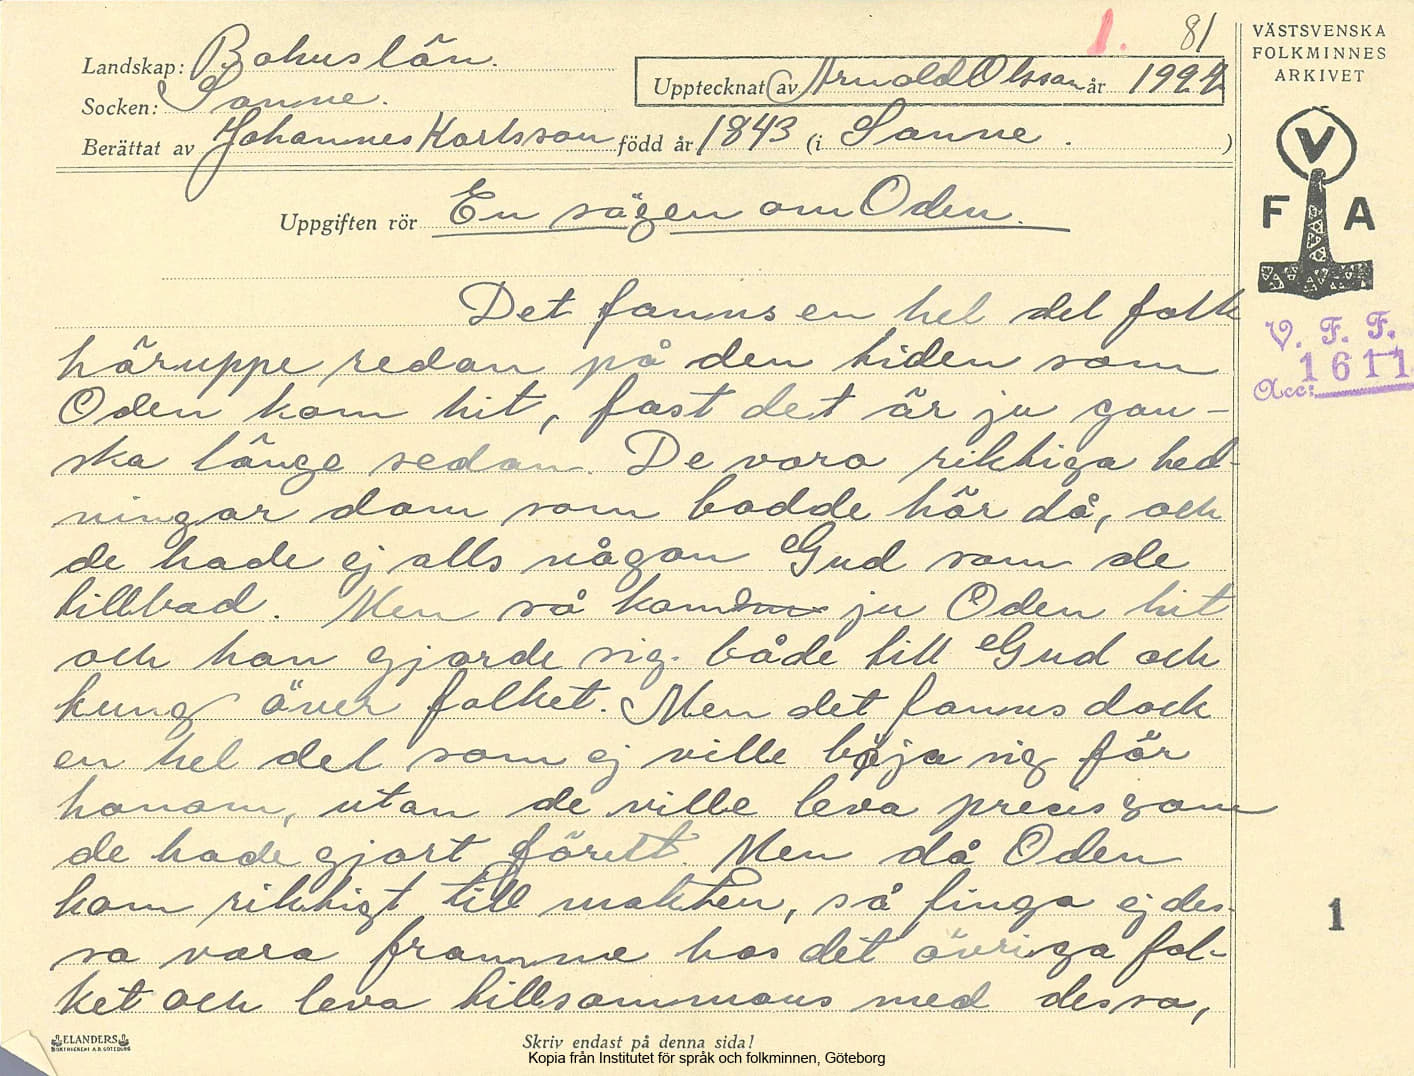 1. 81
Landskap: Bohuslän.
Socken: Sanne.
Upptecknat av Arnold Olssson år 1927
Berättat av Johannes Karlsson född år 1843 (i Sanne. )
Uppgiften rör En sägen om Oden.
Det fanns en hel del folk
häruppe redan på den tiden som
Oden kom hit, fast det är ju gan-
ska länge sedan. De voro riktiga hed-
ningar dom som bodde här då, och
de hade ej alls någon Gud som de
tillbad. Men så kom ju Oden hit
och han gjorde sig både till Gud och
kung över folket. Men det fanns dock
en hel del som ej ville böja sig för
honom, utan de ville leva precis som
de hade gjort förut. Men då Oden
kom riktigt till makten, så finga ej des-
sa vara framme hos det övriga fol-
ket och leva tillsammans med dessa,
ELANDERS
BOKTRYCKERI A.B. GÖTEBORG
Skriv endast på denna sida!
Kopia från Institutet för språk och folkminnen, Göteborg
VÄSTSVENSKA
FOLKMINNES
ARKIVET
V
F A
V. F. F.
Acc: 1611
1